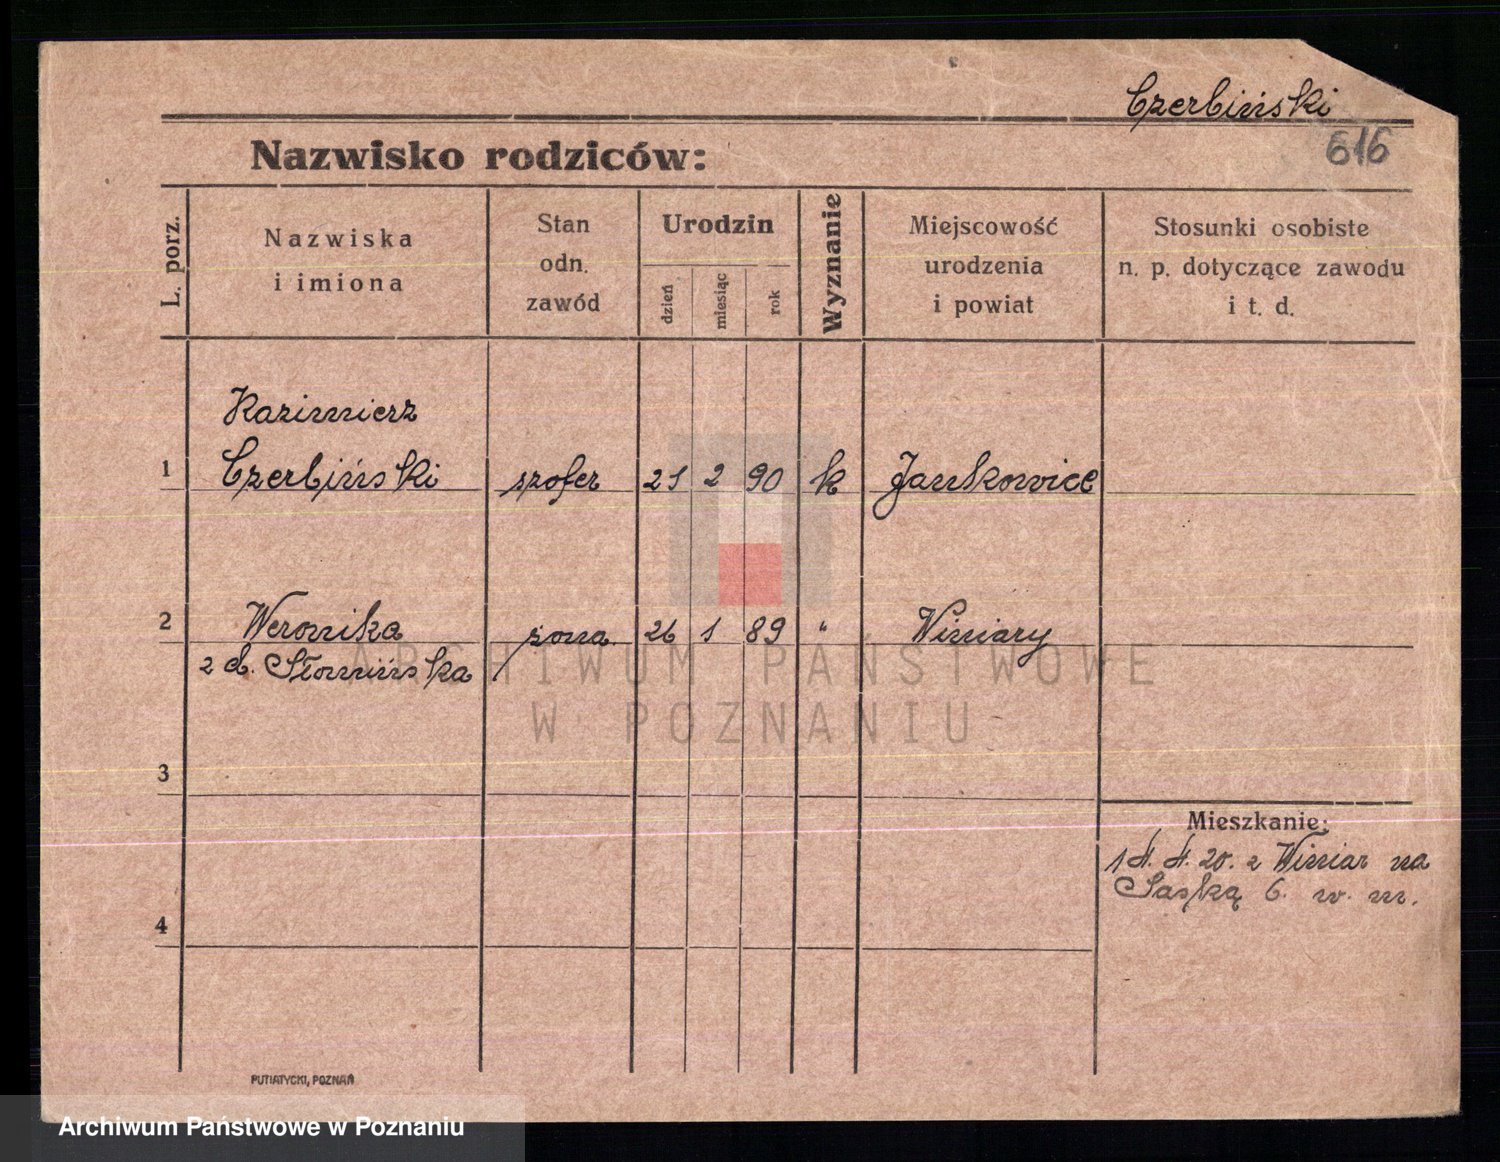 Czerbiński
616
Nazwisko rodziców:
L. porz.
Nazwiska
i imiona
Stan
odn.
zawód
Urodzin
dzień
miesiąc
rok
Wyznanie
Miejscowość
urodzenia
i powiat
Stosunki osobiste
n. p. dotyczące zawodu
i t. d.
Kazimierz
1 Czerbiński szofer 21 2 90 k Jankowice
2 Weronika żona 26 1 89 " Winiary
z d. Słomińska
ARCHIWUM PAŃSTWOWE
W POZNANIU
3
Mieszkanie:
1. 4. 20. z Winiar na
Saską 6. w. m.
4
PUTIATYCKI, POZNAŃ
Archiwum Państwowe w Poznaniu